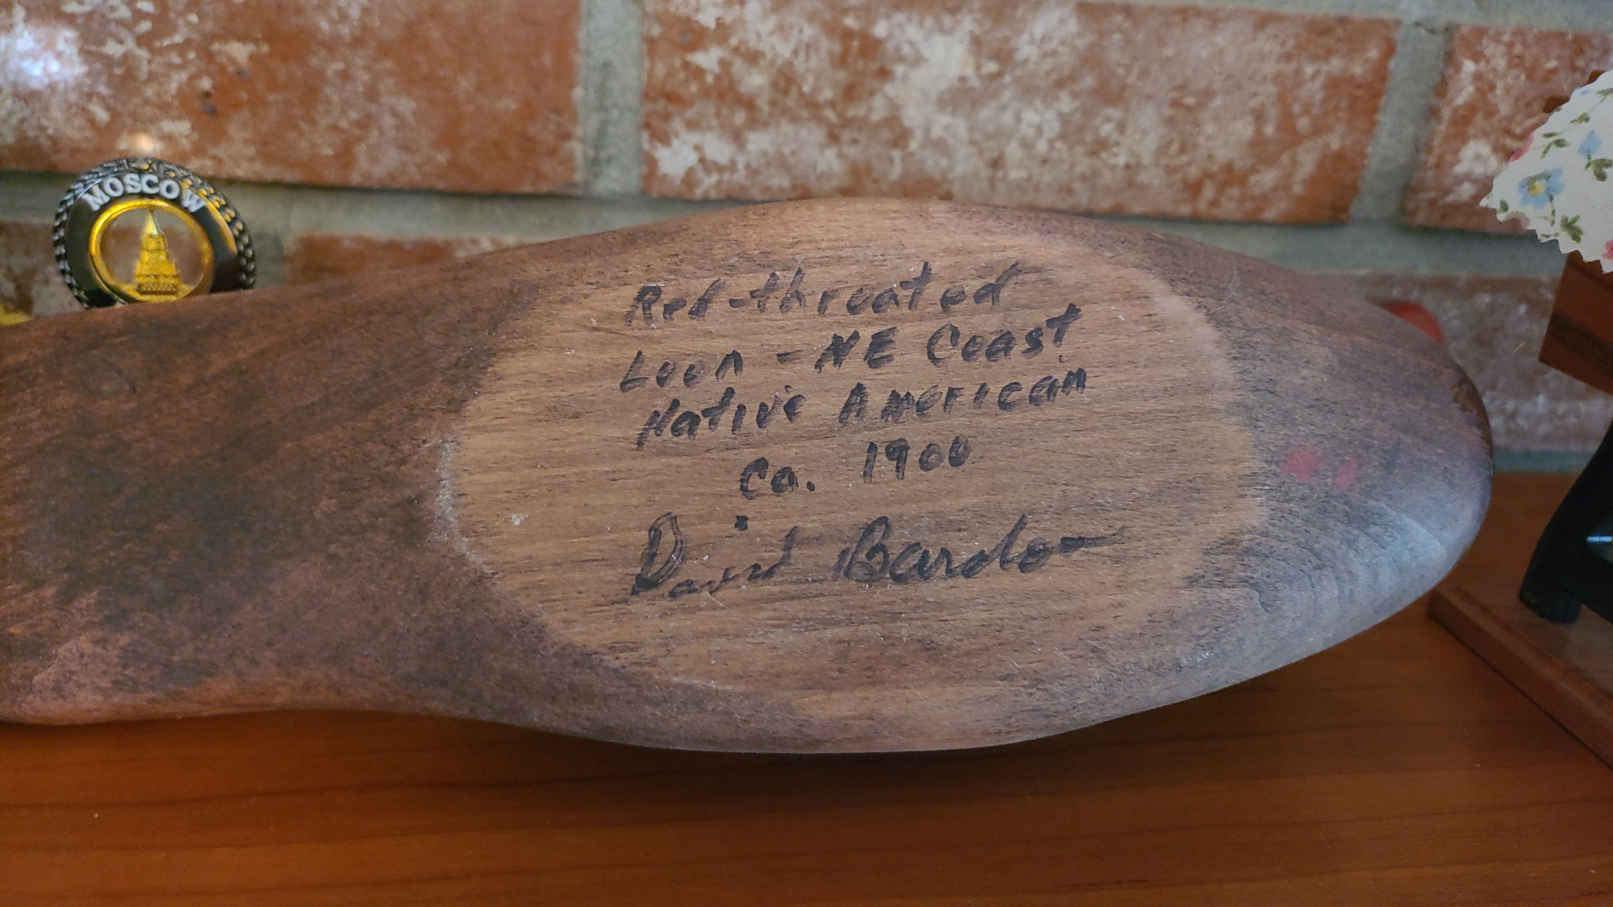 MOSCOW
Red-throated
Loon - NE Coast
Native American
Ca. 1900
David Bardon